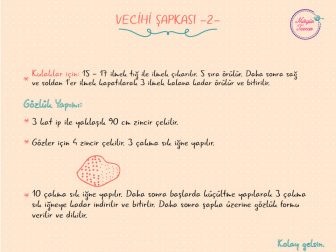 VECİHİ ŞAPKASI -2-
* Kulaklar için: 15 - 17 ilmek tığ ile ilmek çıkarılır. 5 sıra örülür. Daha sonra sağ
ve soldan 1'er ilmek kapatılarak 3 ilmek kalana kadar örülür ve bitirilir.
Gözlük Yapımı:
* 3 kat ip ile yaklaşık 90 cm zincir çekilir.
* Gözler için 4 zincir çekilir. 3 çakma sık iğne yapılır.
* 10 çakma sık iğne yapılır. Daha sonra başlarda küçültme yapılarak 3 çakma
sık iğneye kadar indirilir ve bitirilir. Daha sonra şapka üzerine gözlük formu
verilir ve dikilir.
Kolay gelsin.